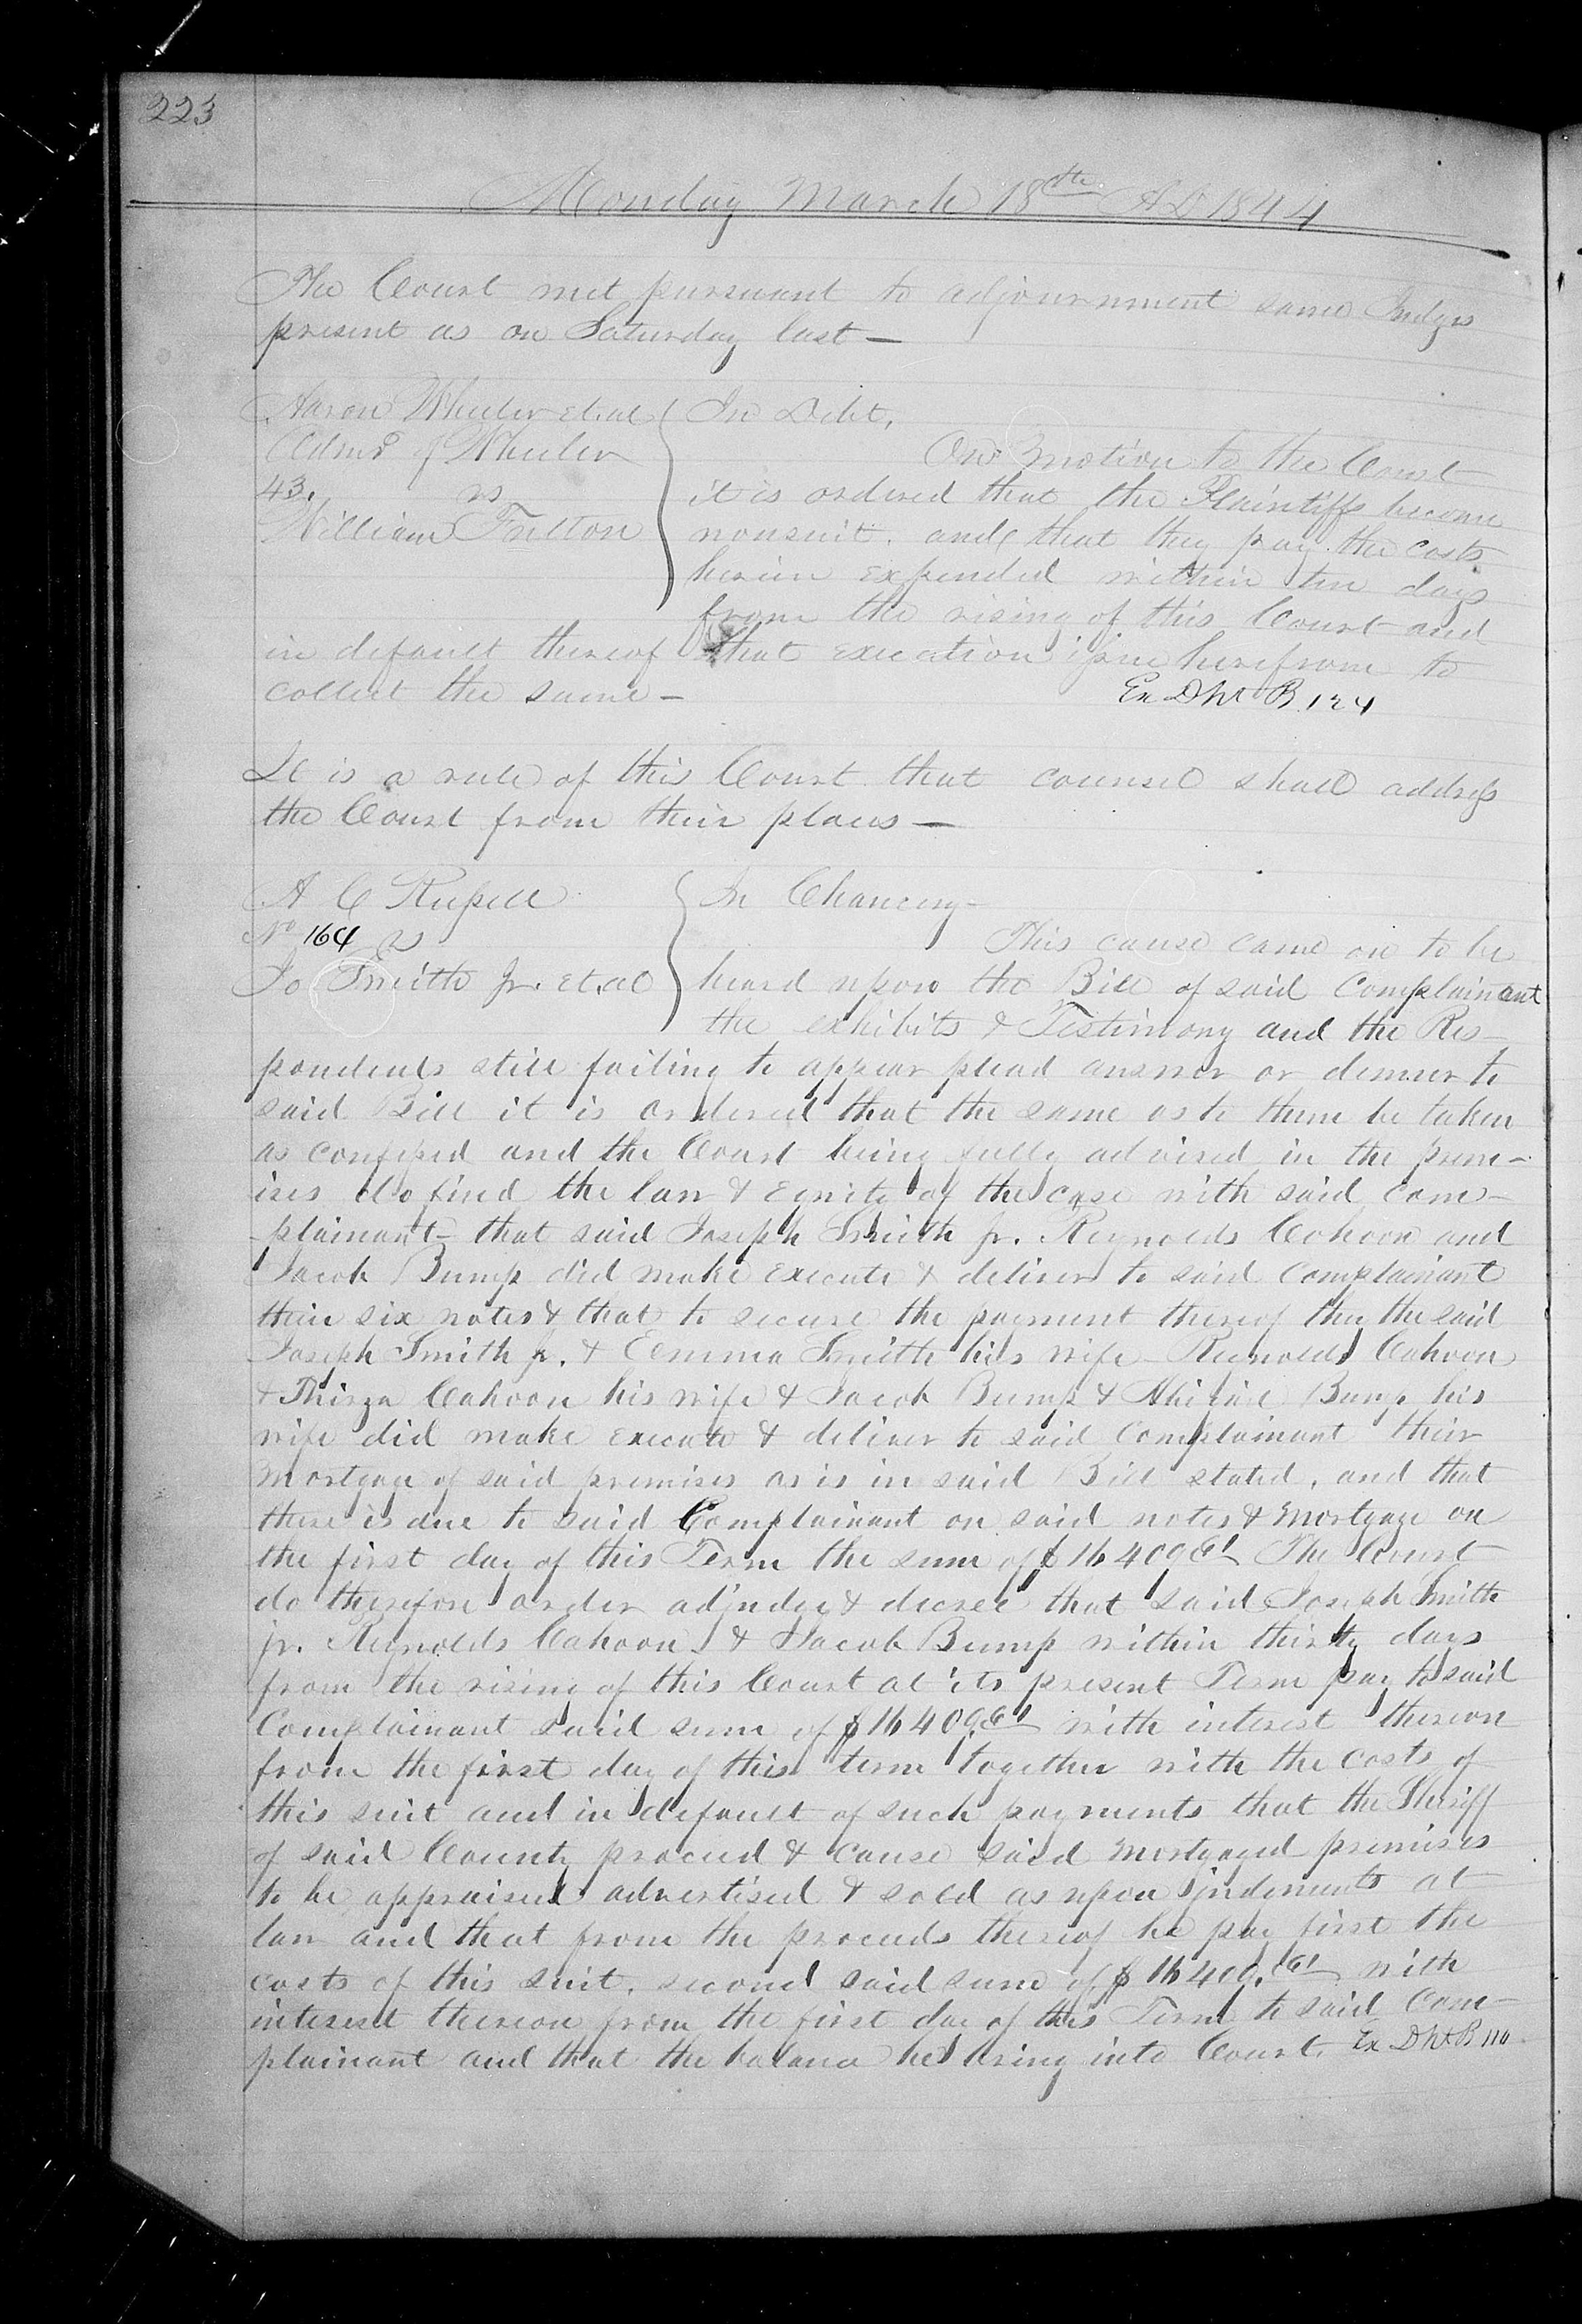 223
Monday March 18th AD 1844
The Court met pursuant to adjournment same Judges
present as on Saturday last —
Aaron Wheeler et. al
Admrs of Wheeler
43. vs
William Fulton
In Debt,
On motion to the Court
it is ordered that the Plaintiffs become
nonsuit. and that they pay the costs
herein expended within ten days
from the rising of this Court and
in default thereof that execution issue herefrom to
collect the same —
Ex Dkt B 124
It is a rule of this Court that counsel shall address
the Court from their places —
A C Russell
No 164 vs
Jo Smith Jr. et. al
In Chancery —
This cause came on to be
heard upon the Bill of said Complainant
the exhibits & Testimony and the Res-
pondents still failing to appear plead answer or demur to
said Bill it is ordered that the same as to them be taken
as confessed and the Court being fully advised in the prem-
ises do find the law & Equity of the case with said com-
-plainant - that said Joseph Smith jr. Reynolds Cohoon and
Jacob Bump did make execute & deliver to said Complainant
their six notes & that to secure the payment thereof they the said
Joseph Smith jr. & Emma Smith his wife - Reynolds Cahoon
& Thirza Cahoon his wife & Jacob Bump & Bump his
wife did make execute & deliver to said Complainant their
Mortgage of said premises as is in said Bill stated, and that
there is due to said Complainant on said notes & Mortgage on
the first day of this Term the sum of The Court
do therefore order adjudge & decree that said Joseph Smith
jr. Reynolds Cahoon & Jacob Bump within thirty days
from the rising of this Court at its present Term pay to said
Complainant said sum of with interest thereon
from the first day of this term together with the costs of
this suit and in default of such payments that the Sheriff
of said County proceed & cause said Mortgaged premises
to be appraised advertised & sold as upon judgments at
law and that from the proceeds thereof he pay first the
costs of this suit. second said sum of with
interest thereon from the first day of this Term to said Com-
plainant and that the balance he bring into Court. Ex Dkt B 110